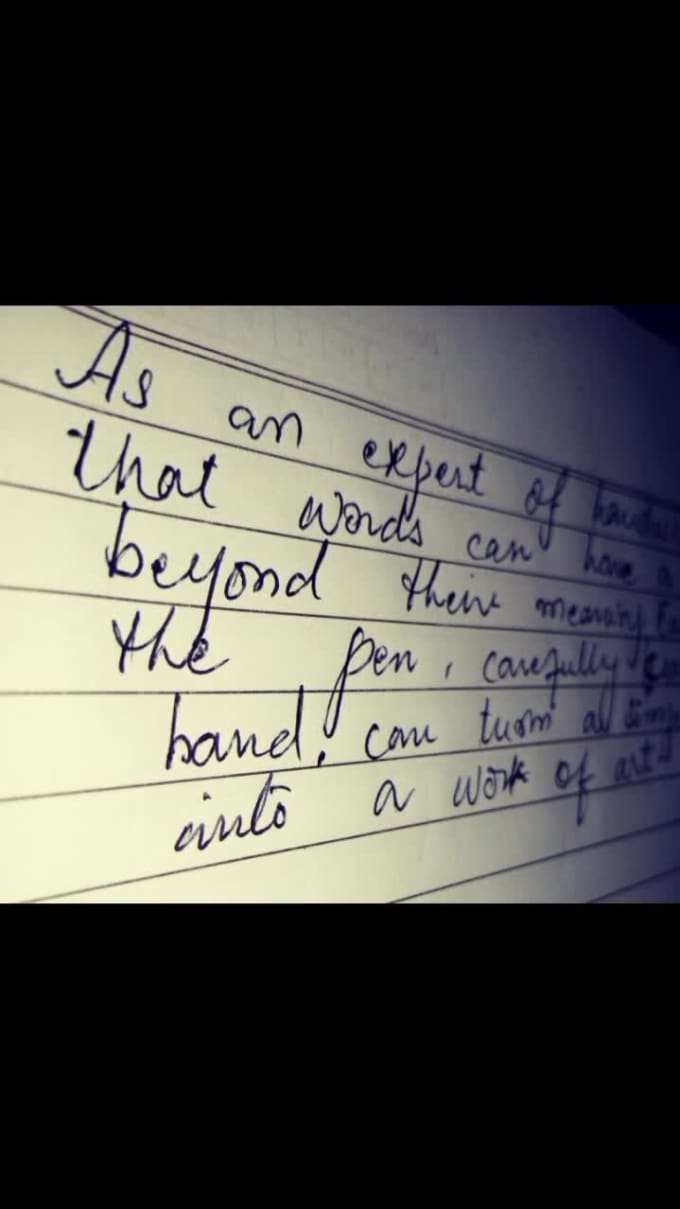 As an expert of
that words can have a
beyond their meaning
the pen, carefully
hand, can turn a
into a work of art